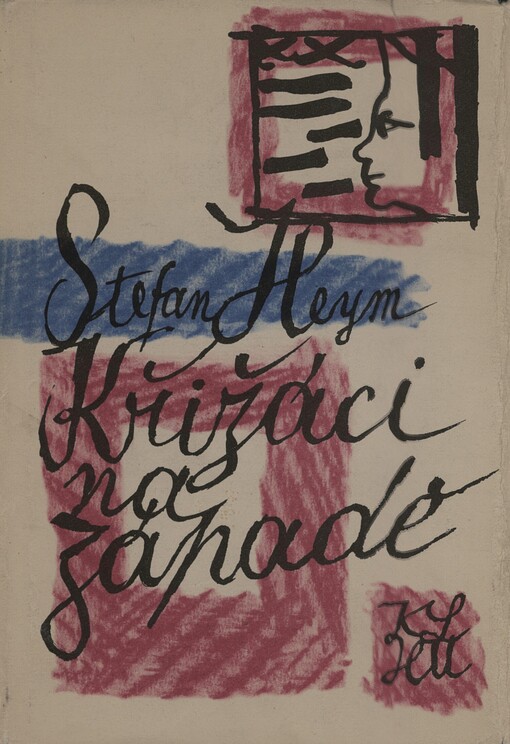 Stefan Heym
Křižáci
na
západě